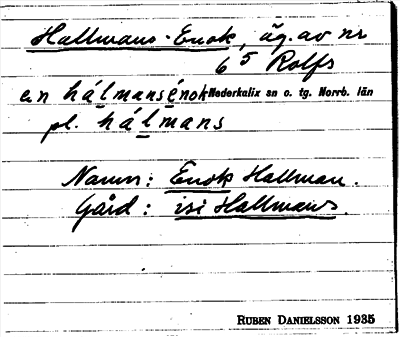 Hallmans-Enok, äg. av nr
6⁵ Rolfs
en hálmansénok Nederkalix sn o. tg. Norrb. län
pl. hálmans
Namn: Enok Hallman.
Gård: isi Hallmans.
RUBEN DANIELSSON 1935